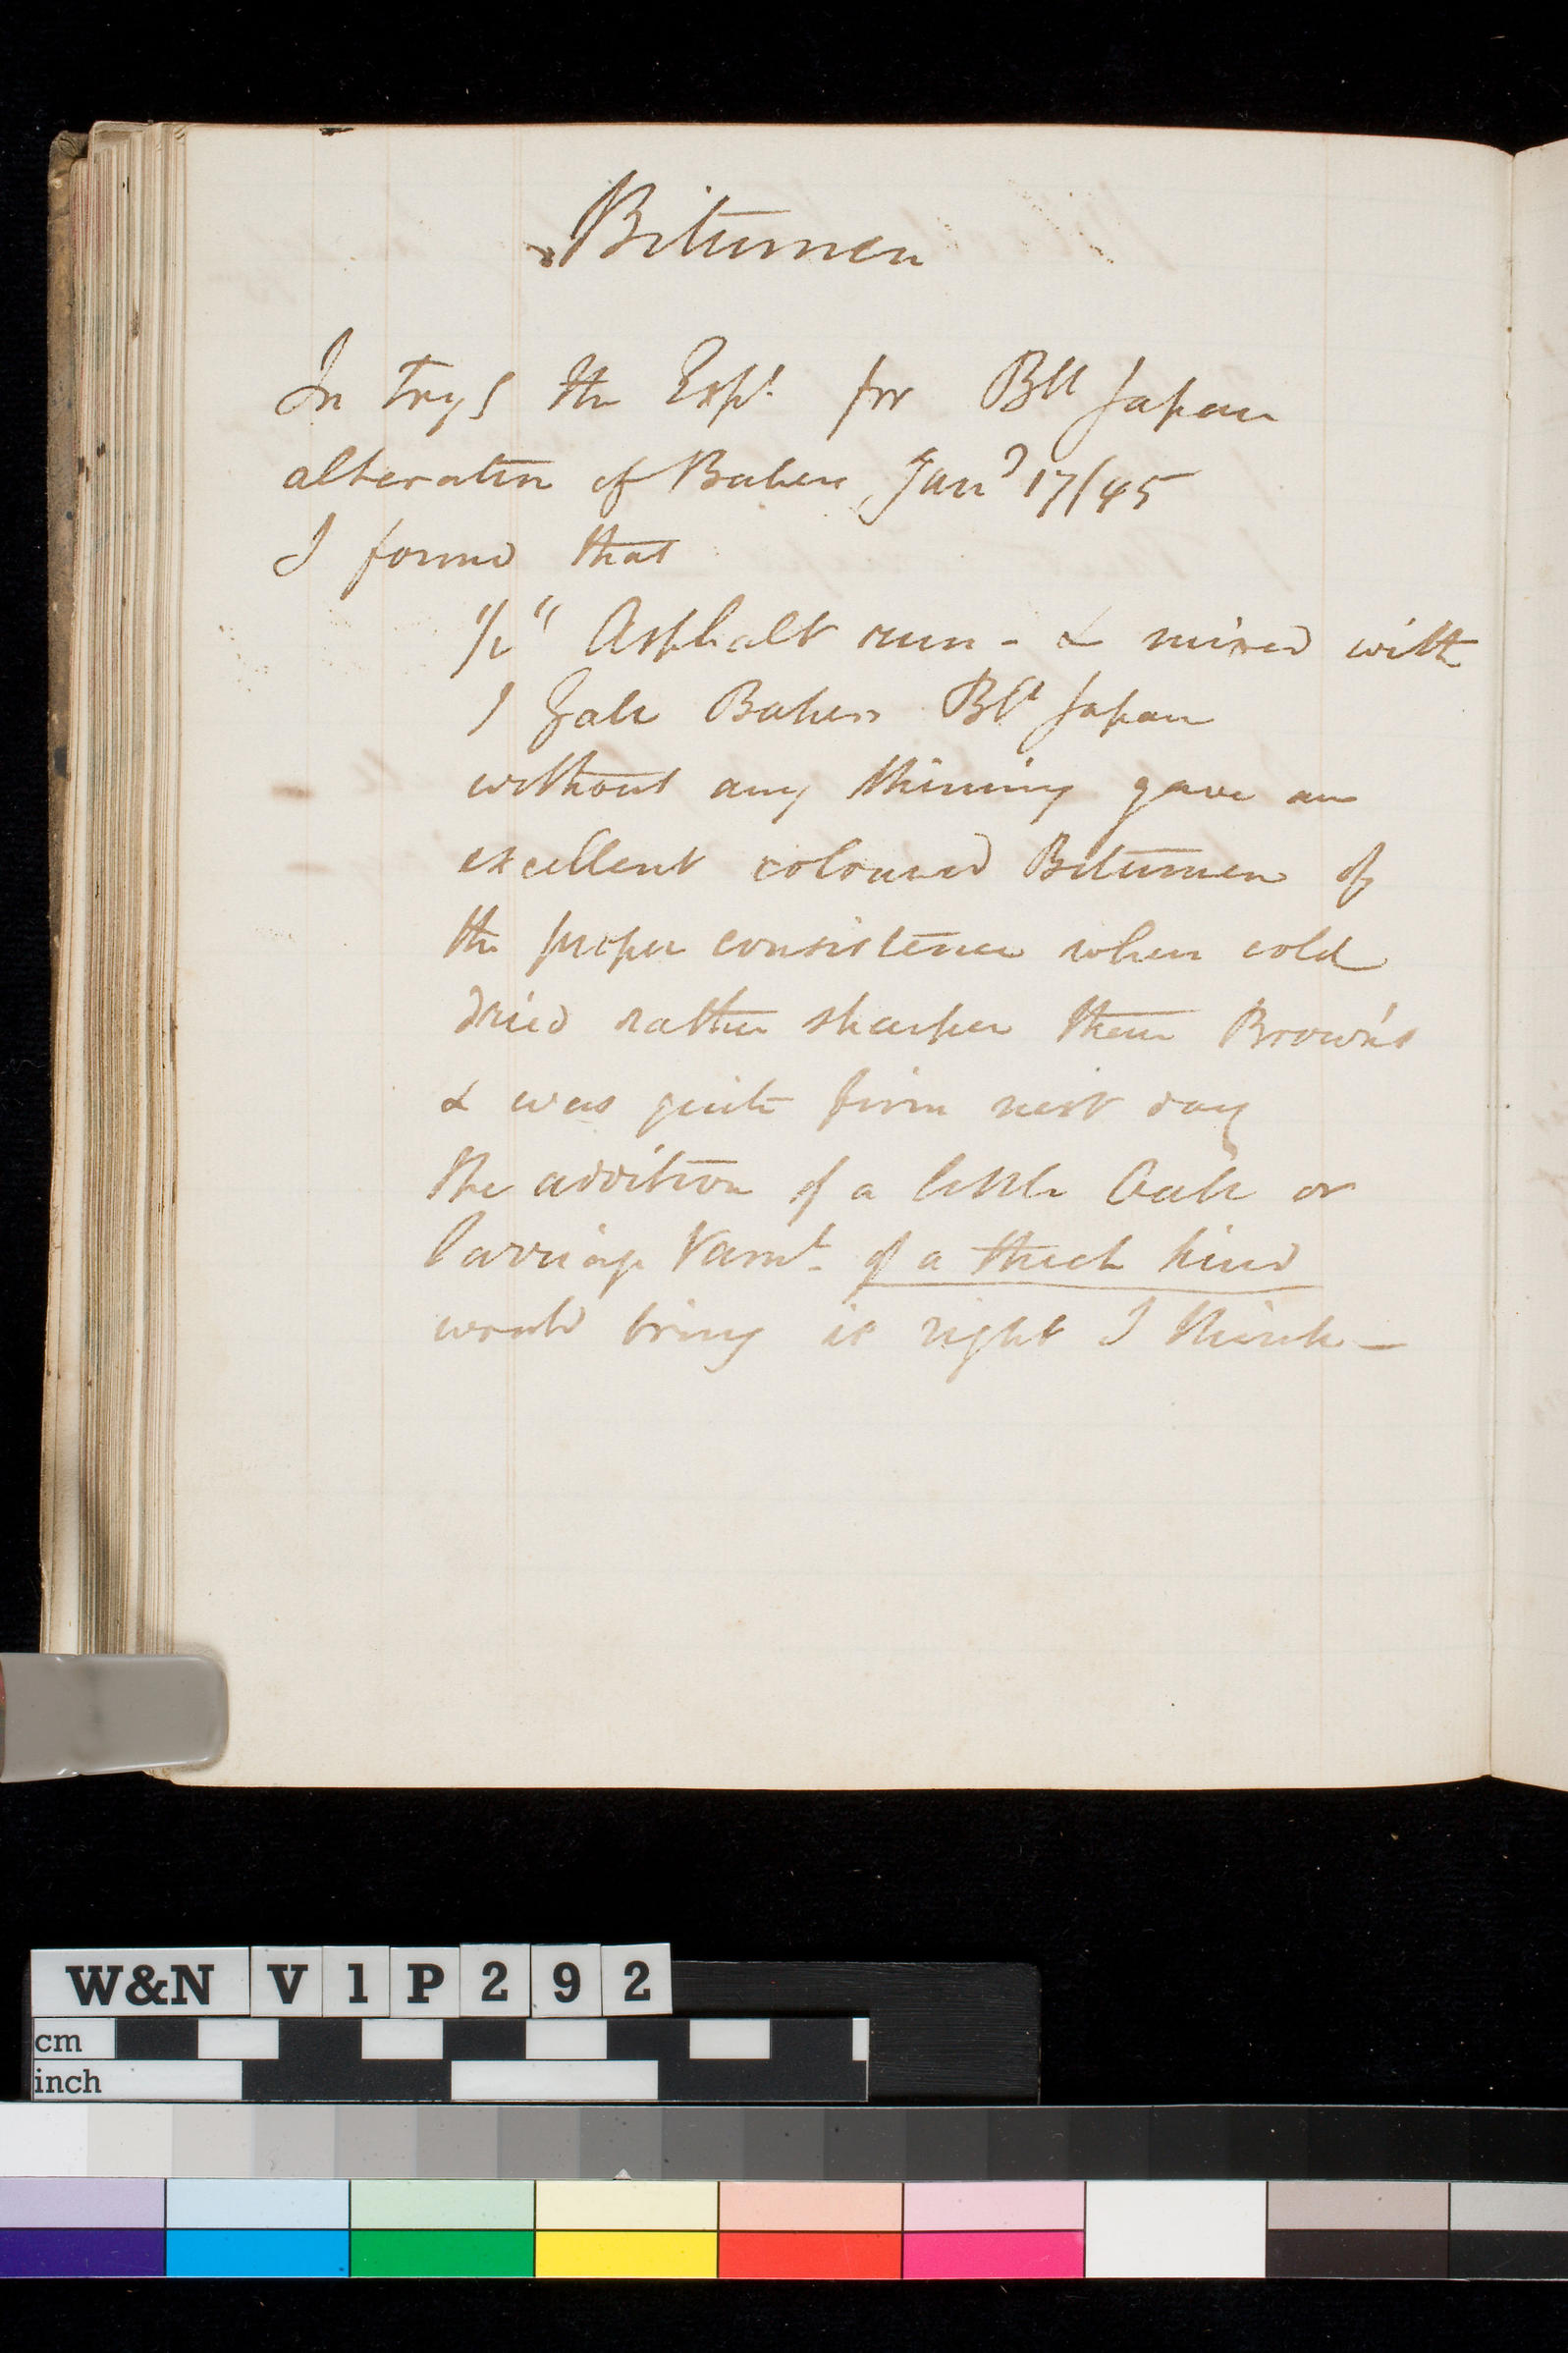 Bitumen
In tryg the Expt. for Blk Japan
alteration of Bakers Jany 17/45
I found that
1/2" Asphalt run - & mixed with
1 Gall Bakers Blk Japan
without any thining gave an
excellent coloured Bitumen of
the proper consistence when cold
dried rather sharper than Brown's
& was quite firm next day
the addition of a little Oak or
Carriage Varnt. of a thick kind
would bring it right I think -
W&N V1P292
cm
inch